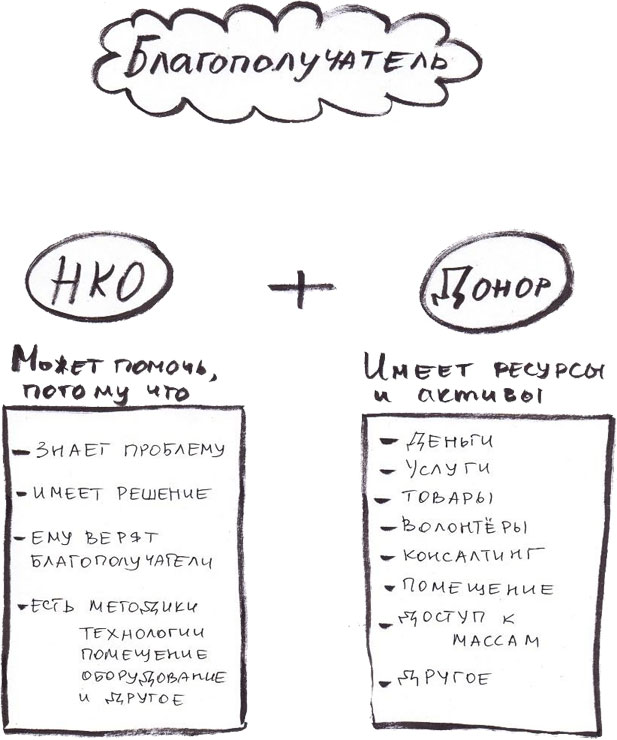 Благополучатель
НКО
+
Донор
Может помочь,
потому что
- знает проблему
- имеет решение
- ему верят
благополучатели
- есть методики
технологии
помещение
оборудование
и другое
Имеет ресурсы
и активы
- Деньги
- услуги
- товары
- волонтёры
- консалтинг
- помещение
- доступ к
массам
- другое